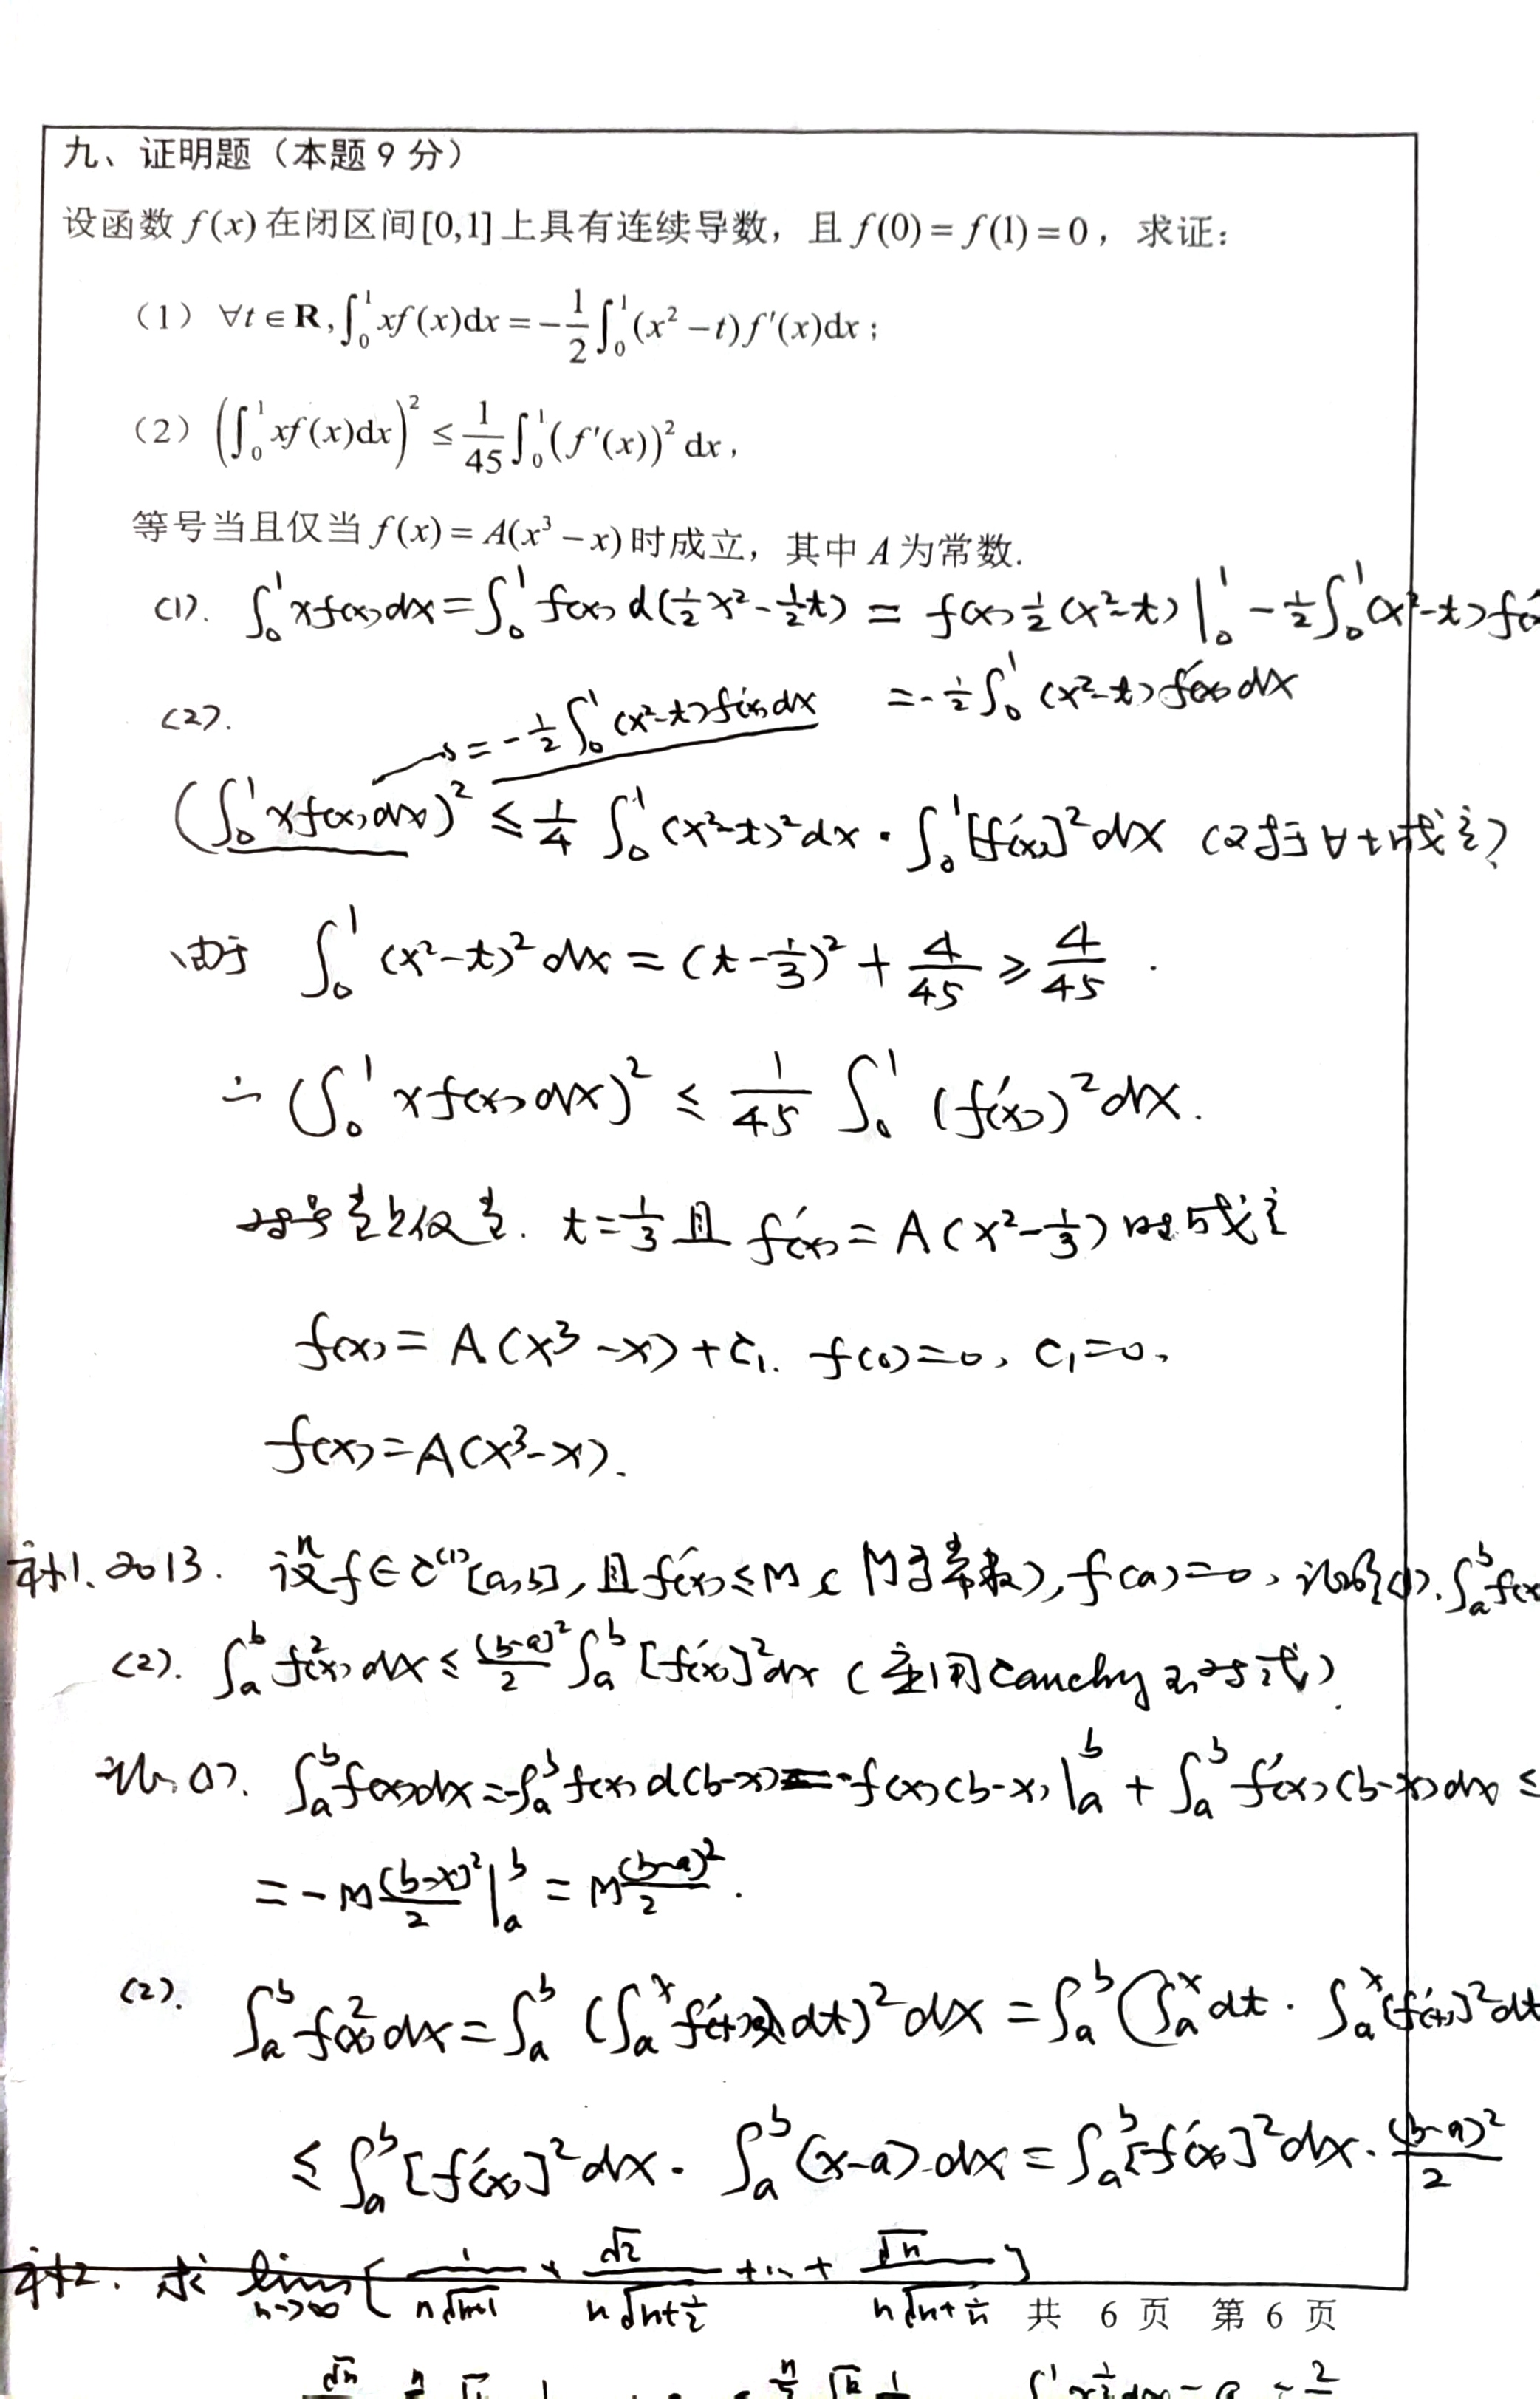 九、证明题（本题 9 分）
设函数 f(x) 在闭区间[0,1]上具有连续导数，且 f(0) = f(1) = 0，求证：
（1）∀t ∈ R, ∫₀¹ xf(x)dx = -1/2 ∫₀¹ (x² - t) f'(x)dx；
（2）(∫₀¹ xf(x)dx)² ≤ 1/45 ∫₀¹ (f'(x))² dx，
等号当且仅当 f(x) = A(x³ - x) 时成立，其中 A 为常数.
(1). ∫₀¹ xf(x)dx = ∫₀¹ f(x) d(1/2 x² - 1/2 t) = f(x) 1/2 (x²-t) |₀¹ - 1/2 ∫₀¹ (x²-t) f'(x)
= -1/2 ∫₀¹ (x²-t) f'(x) dx
(2). = -1/2 ∫₀¹ (x²-t) f'(x) dx
(∫₀¹ xf(x)dx)² ≤ 1/4 ∫₀¹ (x²-t)² dx · ∫₀¹ [f'(x)]² dx (对于∀t成立)
由于 ∫₀¹ (x²-t)² dx = (t - 1/3)² + 4/45 ≥ 4/45 .
∴ (∫₀¹ xf(x)dx)² ≤ 1/45 ∫₀¹ (f'(x))² dx.
等号当且仅当. t = 1/3 且 f'(x) = A(x² - 1/3) 时成立
f(x) = A(x³ - x) + C₁. f(0) = 0, C₁ = 0,
f(x) = A(x³ - x).
补1. 2013. 设 f ∈ C⁽¹⁾[a,b], 且 f'(x) ≤ M (M为常数), f(a) = 0, 证明(1). ∫ₐᵇ f(x)
(2). ∫ₐᵇ f²(x) dx ≤ (b-a)²/2 ∫ₐᵇ [f'(x)]² dx (利用Cauchy不等式)
证: (1). ∫ₐᵇ f(x)dx = -∫ₐᵇ f(x) d(b-x) = -f(x)(b-x) |ₐᵇ + ∫ₐᵇ f'(x)(b-x) dx ≤
= -M (b-x)²/2 |ₐᵇ = M (b-a)²/2 .
(2). ∫ₐᵇ f²(x) dx = ∫ₐᵇ (∫ₐˣ f'(t) dt)² dx = ∫ₐᵇ (∫ₐˣ dt · ∫ₐˣ [f'(t)]² dt
≤ ∫ₐᵇ [f'(x)]² dx · ∫ₐᵇ (x-a) dx = ∫ₐᵇ [f'(x)]² dx · (b-a)²/2
补2. 求 lim n→∞ [ 1/(n√(n+1)) + √2/(n√(n+1/2)) + ... + √n/(n√(n+1/n)) ]
共 6 页 第 6 页